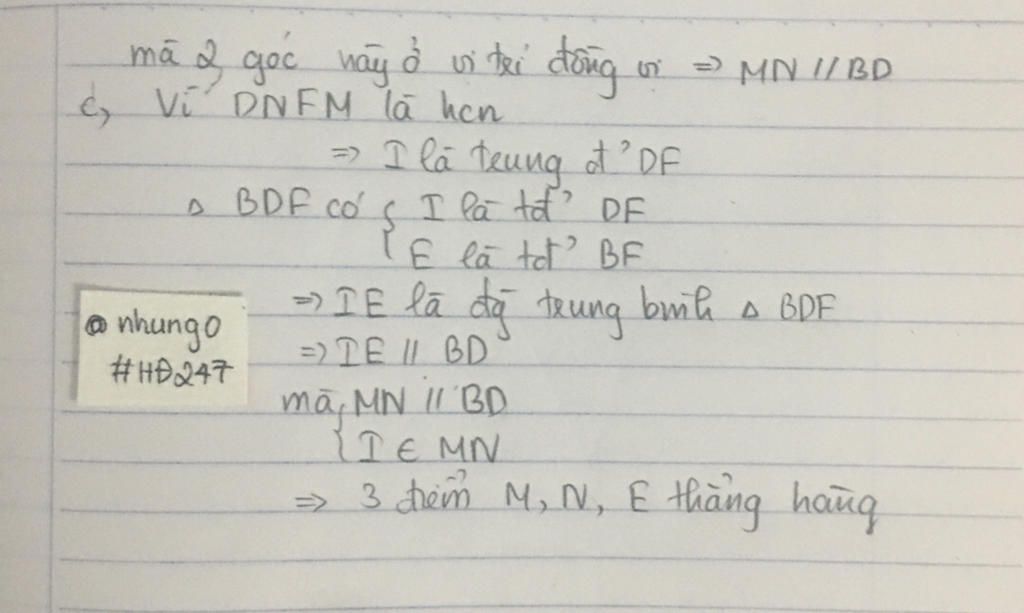 mà 2 góc này ở vị trí đồng vị => MN // BD
c, Vì DNFM là hcn
=> I là trung đ' DF
Δ BDF có { I là tđ' DF
E là tđ' BF
=> IE là đg trung bình Δ BDF
=> IE // BD
mà { MN // BD
I ∈ MN
=> 3 điểm M, N, E thẳng hàng
@nhung0
#HĐ247